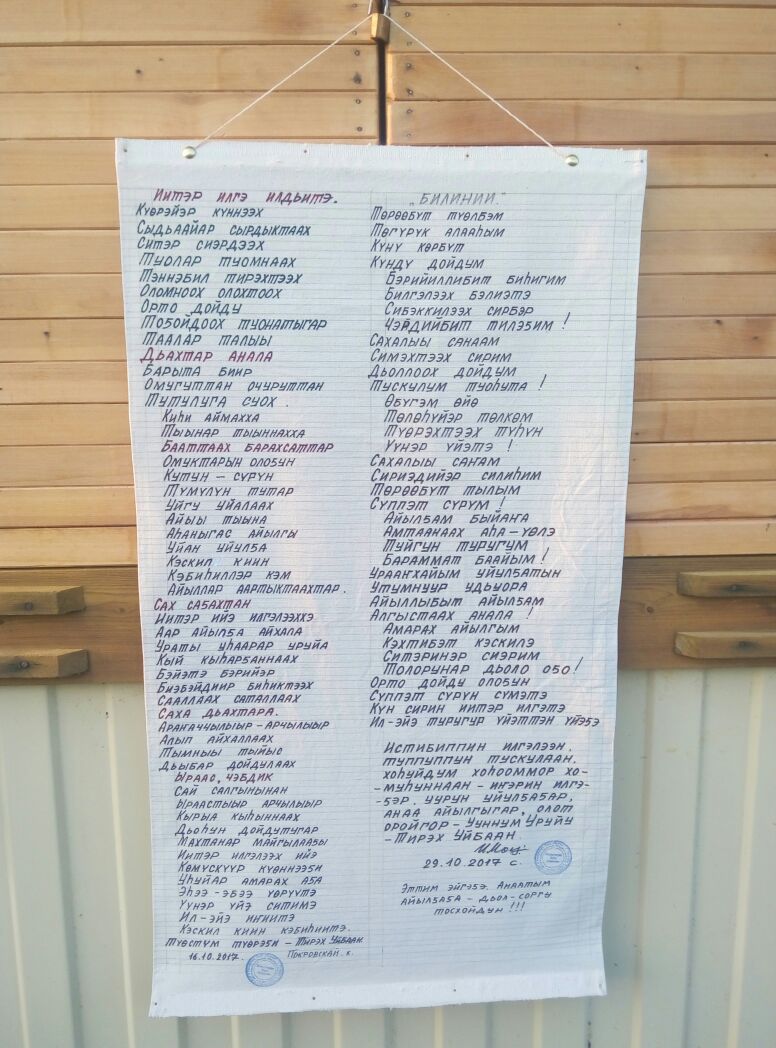 Иитэр илгэ илдьитэ.
Күөрэйэр күннээх
Сыдьаайар сырдыктаах
Ситэр сиэрдээх
Туолар туомнаах
Тэннэбил тирэхтээх
Оломноох олохтоох
Орто дойду
Тоҕойдоох туонатыгар
Таалар талыы
Дьахтар анала
Барыта биир
Омугуттан очуруттан
Тутулуга суох.
Киһи аймахха
Тыынар тыыннахха
Бааттаах барахсаттар
Омуктарын олоҕун
Кутун – сүрүн
Түмүлүн тутар
Уйгу уйалаах
Айыы тыына
Аһаныгас айылгы
Уйан уйулҕа
Кэскил киин
Кэбиһиллэр кэм
Айыллар аартыктаахтар.
Сах саҕахтан
Иитэр ийэ илгэлээххэ
Аар айылҕа айхала
Ураты уһаарар уруйа
Кый кыһарҕаннаах
Бэйэтэ бэрийэр
Биэбэйдиир биһиктээх
Сааллаах саталлаах
Саха дьахтара.
Араначчылыыр – арчылыыр
Алып айхаллаах
Тымныы тыйыс
Дьыбар дойдулаах
Ыраас, чэбдик
Сай салгынынан
Ырастыыр арчылыыр
Кырыа кыһыннаах
Дьоһун дойдутугар
Махтанар майгылааҕы
Иитэр илгэлээх ийэ
Көмүскүүр күөннээҕи
Уһуйар амарах аҕа
Эһээ - эбээ үөрүүтэ
Үүнэр үйэ ситимэ
Ил – эйэ инниитэ
Кэскил киин кэбиһиитэ.
Түөстүм түөрэҕи – Тирэх Уйбаан
16.10.2017. Покровскай к.
„Билинии."
Төрөөбүт түөлбэм
Төгүрүк алааһым
Күнү көрбүт
Күндү дойдум
Бэрийиллибит биһигим
Билгэлээх бэлиэтэ
Сибэккилээх сирбэр
Чэрдийбит тилэҕим !
Сахалыы санаам
Симэхтээх сирим
Дьоллоох дойдум
Тускулум туоһута !
Өбүгэм өйө
Төлөһүйэр төлкөм
Түөрэхтээх түһүн
Үүнэр үйэтэ !
Сахалыы саҥам
Сириэдийэр силиһим
Төрөөбүт тылым
Сүппэт сүрүм !
Айылҕам быйаҥа
Амтаанаах аһа – үөлэ
Туйгун туругум
Бараммат баайым !
Урааҥхайым уйулҕатын
Утумнуур удьуора
Айыллыбыт айылҕам
Алгыстаах анала !
Амарах айылгым
Кэхтибэт кэскилэ
Ситэринэр сиэрим
Толорунар дьоло оҕо !
Орто дойду олоҕун
Сүппэт сүрүн сүмэтэ
Күн сирин иитэр илгэтэ
Ил – эйэ туругур үйэттэн үйэҕэ
Истибиппин илгэлээн,
туппуппун тускулаан,
хоһуйдум хоһооммор хо-
-муһуннаан – иҥэрин илгэ-
-ҕэр, уурун уйулҕаҕар,
анаа айылгыгар, олот
оройгор – Ууннум Уруйу
– Тирэх Уйбаан.
29.10.2017 с.
Эттим эйгэҕэ. Анаатым
айылҕаҕа – дьол – соргу
тосхойдун !!!